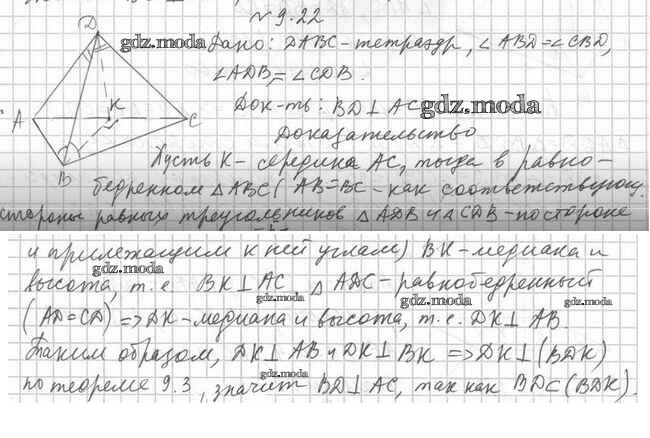 № 9.22
D
gdz.moda
Дано: DABC - тетраэдр, ∠ABD = ∠CBD,
∠ADB = ∠CDB.
A K C
Док-ть: BD ⊥ AC gdz.moda
Доказательство
B
Пусть K - середина AC, тогда в равно-
бедренном △ABC (AB=BC - как соответствующ.
стороны равных треугольников △ADB и △CDB - по стороне
и прилежащим к ней углам) BK - медиана и
gdz.moda
высота, т.е. BK ⊥ AC △ADC - равнобедренный
gdz.moda gdz.moda gdz.moda
(AD=CD) => DK - медиана и высота, т.е. DK ⊥ AB.
Таким образом, DK ⊥ AB и DK ⊥ BK => DK ⊥ (BDK)
gdz.moda
по теореме 9.3, значит BD ⊥ AC, так как BD ⊂ (BDK).